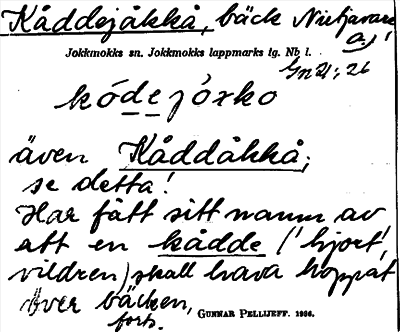 Kåddejåkkå, bäck Nietjavare
a.)!
Jokkmokks sn. Jokkmokks lappmarks tg. Nb l.
Gn 21; 26
kódejóxko
även Kåddåkkå;
se detta!
Har fått sitt namn av
att en kådde ('hjort',
vildren) skall hava hoppat
över bäcken,
forts. GUNNAR PELLIJEFF. 1936.